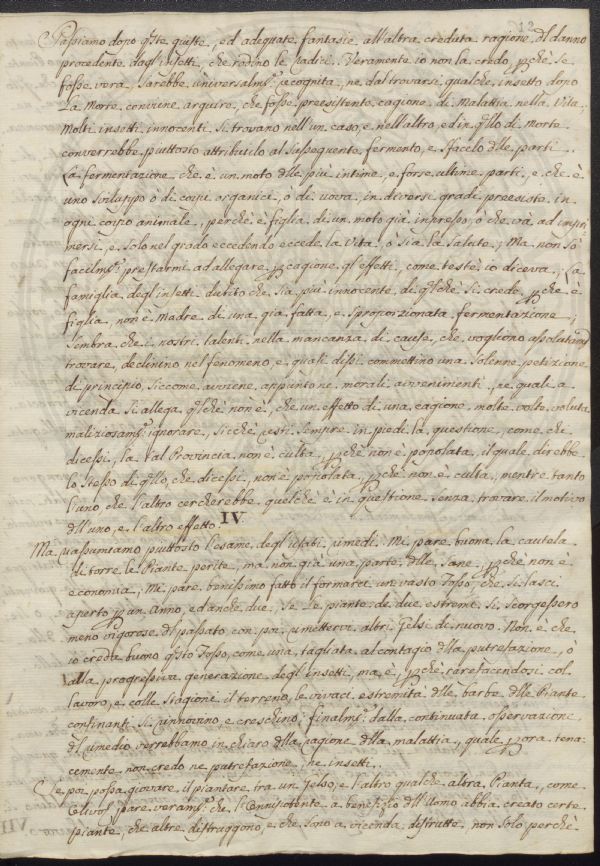 12
Passiamo dopo q.ste giuste, ed adequate fantasie all'altra creduta ragione dl danno
procedente dagl'insetti, che rodino le radici. Veramente io non la credo, p.chè se
fosse vera, sarebbe universalm.te recognita, ne dal trovarsi qualche insetto dopo
La Morte conviene arguire, che fosse preesistente cagione di Malattia nella Vita,
Molti insetti innocenti si trovano nell'un caso, e nell'altro, ed in q.llo di Morte
converrebbe piuttosto attribuirlo al sussequente fermento, e sfacelo dlle parti
La fermentazione che è un moto dlle più intime, e forse ultime parti, e che è
uno sviluppo ò di corpi organici, ò di uova in diversi gradi preesiste in
ogni corpo animale, perchè è figlia di un moto già impresso, ò che và ad impri
mersi, e solo nel grado eccedendo eccede la Vita, ò sia la salute; Ma non sò
facilm.te prestarmi ad allegare p. cagione gl'effetti, come testè io diceva; La
famiglia degl'insetti dubito che sia più innocente di q.l che si crede p.chè è
figlia, non è Madre di una già fatta, e sproporzionata fermentazione;
Sembra che i nostri talenti nella mancanza di cause, che vogliono assolutam.te
trovare, declinino nel fenomeno, e quasi dissi commettino una solenne petizione
di principio, siccome avviene appunto ne morali avvenimenti, ne quali a
vicenda si allega q.l che non è, che un effetto di una cagione molte volte voluta
maliziosam.te ignorare, sicchè resti sempre in piedi la questione, come che
dicessi, la tal Provincia non è culta, p.chè non è popolata, il quale direbbe
lo stesso di q.llo, che dicessi, non è popolata, p.chè non è culta, mentre tanto
l'uno, che l'altro cercherebbe quelche è in questione senza trovare il motivo
dll'uno, e l'altro effetto.
IV
Ma riassumiamo piuttosto l'esame degl'usati rimedi. Mi pare buona la cautela
di torre le Piante perite, ma non già una parte dlle sane, p.chè non è
economia; Mi pare benissimo fatto il formarci un vasto fosso, che si lasci
aperto p. un Anno, ed anche due, se le piante de due estremi si scorgessero
meno vigorose dl passato con p.oi rimettervi altri Gelsi di nuovo. Non è che
io creda buono q.sto fosso, come una tagliata al contagio dlla putrefazione, ò
alla progressiva generazione degl'insetti, ma è, p.chè rarefacendosi col
lavoro, e colle stagioni il terreno, le vivaci estremità dlle barbe dlle Piante
confinanti si rinnovino, e creschino; finalm.te dalla continuata osservazione
dl rimedio verrebbamo in chiaro dlla ragione dlla malattia, quale p. ora tena-
cemente non credo ne putrefazione, ne insetti.
Se poi possa giovare il piantare tra un Gelso, e l'altro qualche altra Pianta, come
Olivo, pare veram.te che l'Onnipotente a benefizio dll'Uomo abbia creato certe
piante, che altre distruggono, e che sono a vicenda distrutte, non solo perchè